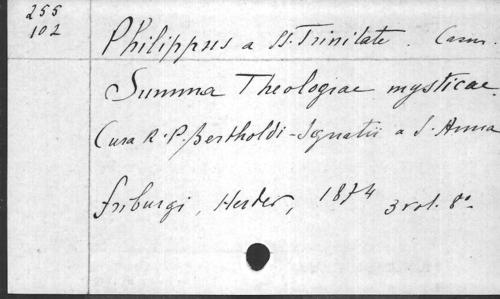 255
102
Philippus a SS. Trinitate. Carm.
Summa Theologiae mysticae.
Cura R. P. Bertholdi-Ignatii a S. Anna
Friburgi, Herder, 1874 3 vol. 8°.